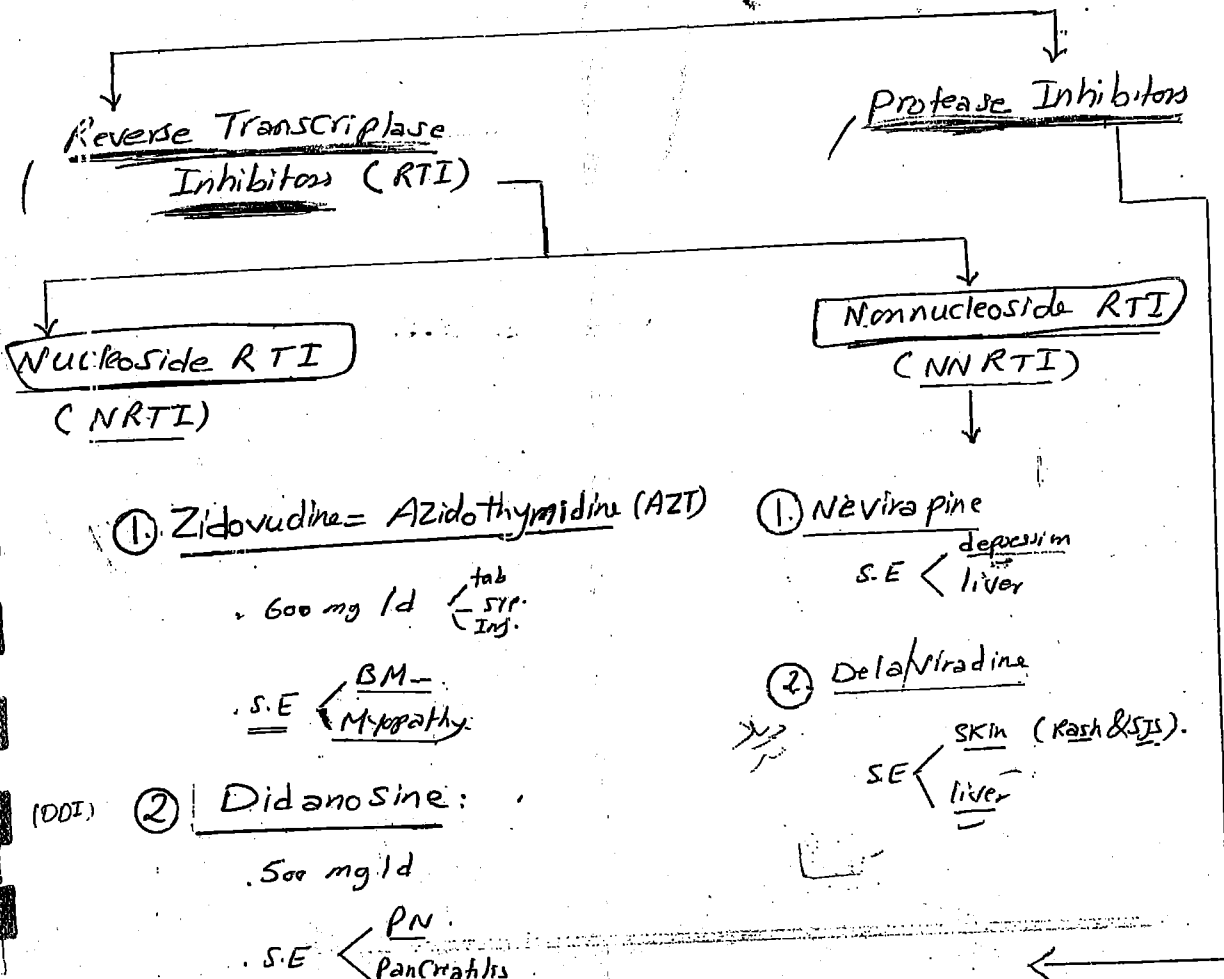 Reverse Transcriptase
Inhibitors (RTI)
Protease Inhibitors
Nucleoside RTI
(NRTI)
Nonnucleoside RTI
(NNRTI)
① Zidovudine = Azidothymidine (AZT)
. 600 mg /d
tab
syp.
Inj.
. S.E
BM-
Myopathy.
(DDI) ② Didanosine:
. 500 mg/d
. S.E
PN.
Pancreatitis
① Nevirapine
S.E
depression
liver
② Delaviradine
S.E
skin (Rash & SJS).
liver